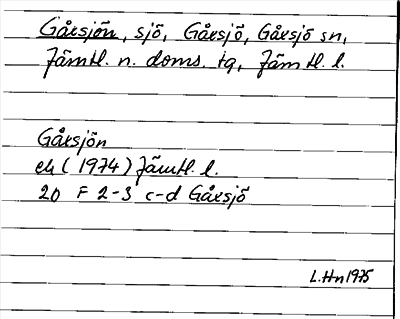 Gåxsjön, sjö, Gåxsjö, Gåxsjö sn,
Jämtl. n. doms. tg, Jämtl. l.
Gåxsjön
ek (1974) Jämtl. l.
20 F 2-3 c-d Gåxsjö
L.Hn 1975